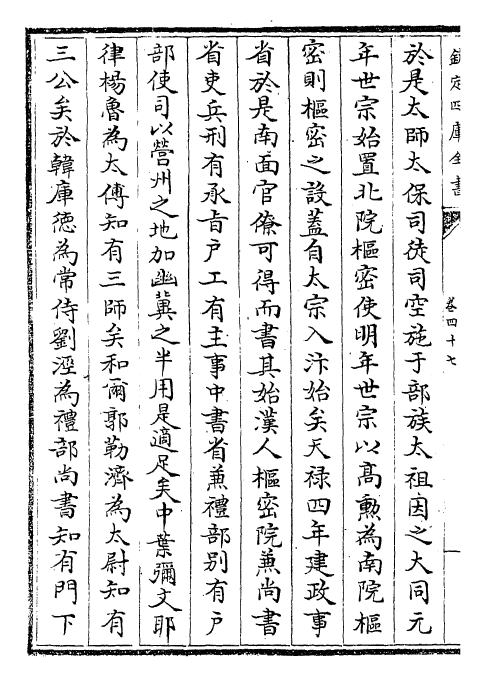 欽定四庫全書
卷四十七
一
於是太師太保司徒司空施于部族太祖因之大同元
年世宗始置北院樞密使明年世宗以髙勲為南院樞
密則樞密之設蓋自太宗入汴始矣天禄四年建政事
省於是南面官僚可得而書其始漢人樞密院兼尚書
省吏兵刑有承㫖户工有主事中書省兼禮部别有户
部使司以營州之地加幽冀之半用是適足矣中葉彌文耶
律楊魯為太傅知有三師矣和爾郭勒濟為太尉知有
三公矣於韓庫徳為常侍劉涇為禮部尚書知有門下